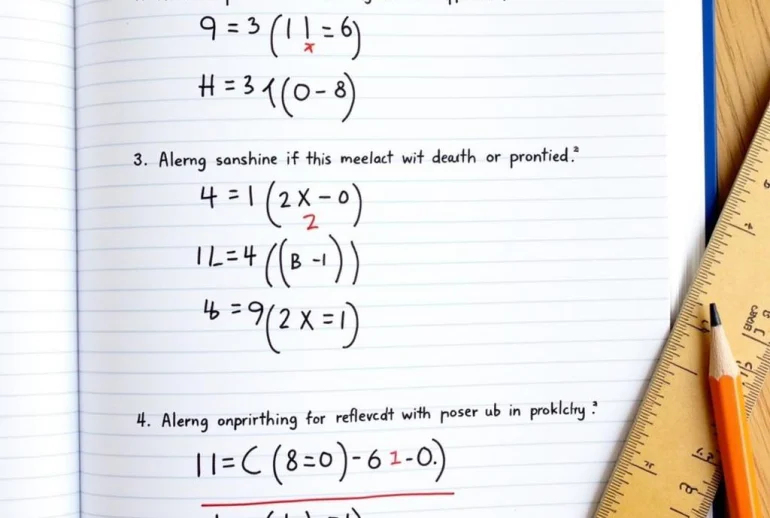 9 = 3 (11 = 6)
x
H = 3 1(0 - 8)
3. Alerng sanshine if this meelact wit death or prontied.²
4 = 1 (2X - 0)
2
1L = 4 ((B - 1))
= 9 (2 X = 1)
4. Alerng onprirthing for reflevcdt with poser ub in proklclry ?
11 = C (8 = 0) - 6 1 - 0.)